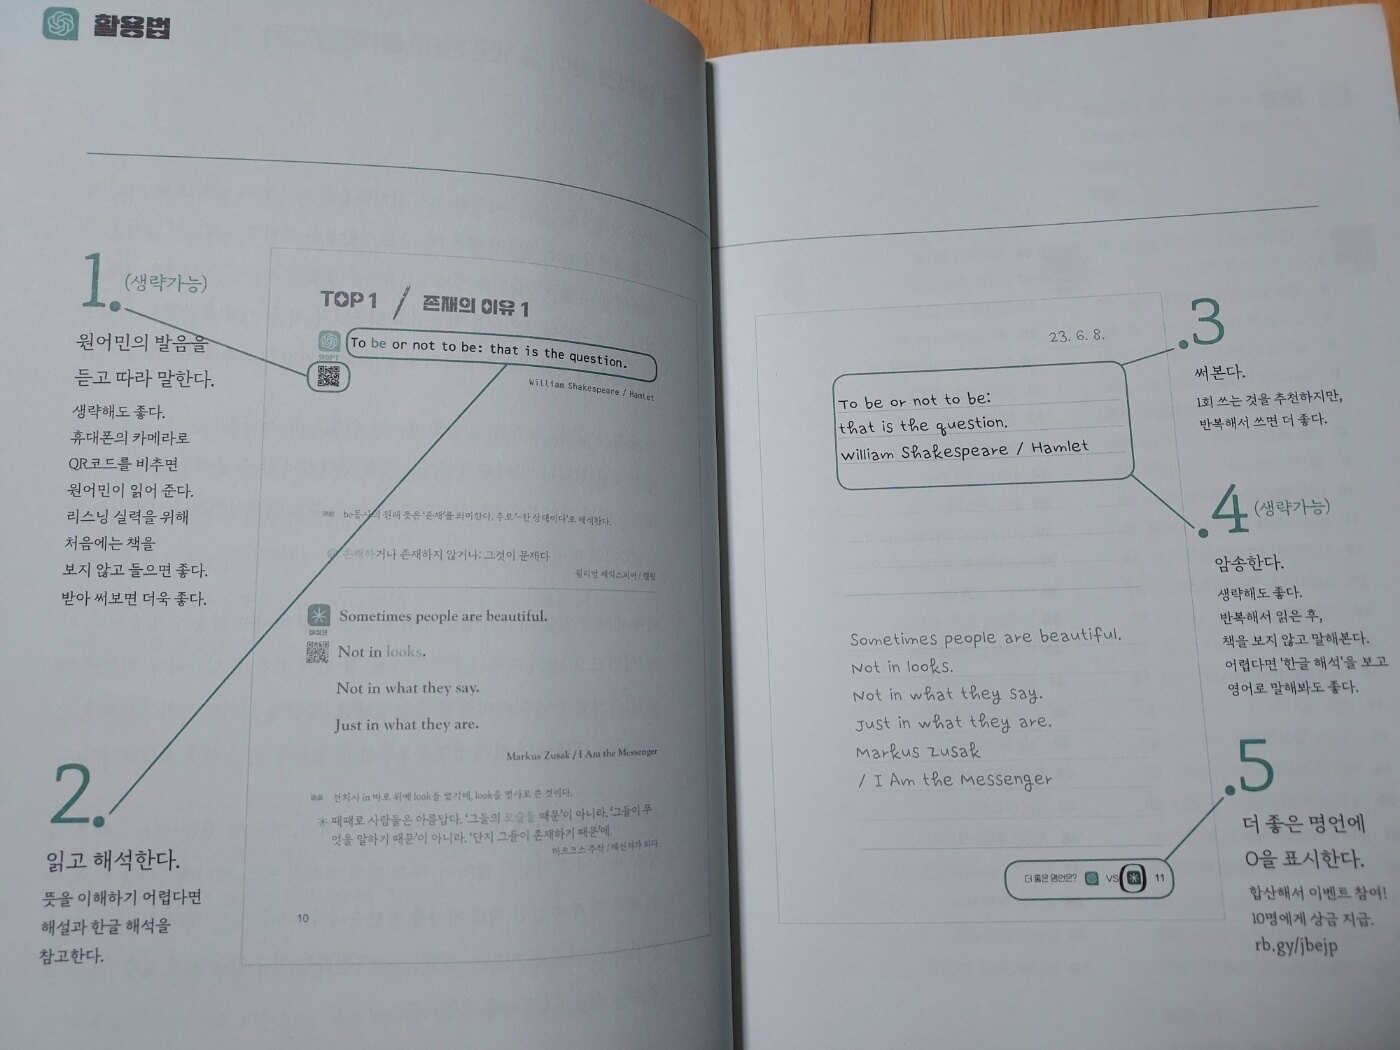 활용법
1.
(생략가능)
원어민의 발음을
듣고 따라 말한다.
생략해도 좋다.
휴대폰의 카메라로
QR코드를 비추면
원어민이 읽어 준다.
리스닝 실력을 위해
처음에는 책을
보지 않고 들으면 좋다.
받아 써보면 더욱 좋다.
2.
읽고 해석한다.
뜻을 이해하기 어렵다면
해설과 한글 해석을
참고한다.
TOP 1 / 존재의 이유 1
챗GPT
To be or not to be: that is the question.
William Shakespeare / Hamlet
be동사의 원래 뜻은 '존재'를 의미한다. 주로 '~한 상태이다'로 해석한다.
존재하거나 존재하지 않거나: 그것이 문제다
윌리엄 셰익스피어 / 햄릿
마이크
Sometimes people are beautiful.
Not in looks.
Not in what they say.
Just in what they are.
Markus Zusak / I Am the Messenger
전치사 in 바로 뒤에 look을 썼기에, look을 명사로 쓴 것이다.
때때로 사람들은 아름답다. '그들의 모습들 때문'이 아니라. '그들이 무
엇을 말하기 때문'이 아니라. '단지 그들이 존재하기 때문'에.
마르크스 주삭 / 메신저가 되다
10
23. 6. 8.
To be or not to be:
that is the question.
William Shakespeare / Hamlet
Sometimes people are beautiful.
Not in looks.
Not in what they say.
Just in what they are.
Markus Zusak
/ I Am the Messenger
더 좋은 명언은? VS 11
.3
써본다.
1회 쓰는 것을 추천하지만,
반복해서 쓰면 더 좋다.
.4
(생략가능)
암송한다.
생략해도 좋다.
반복해서 읽은 후,
책을 보지 않고 말해본다.
어렵다면 '한글 해석'을 보고
영어로 말해봐도 좋다.
.5
더 좋은 명언에
O을 표시한다.
합산해서 이벤트 참여!
10명에게 상금 지급.
rb.gy/jbejp